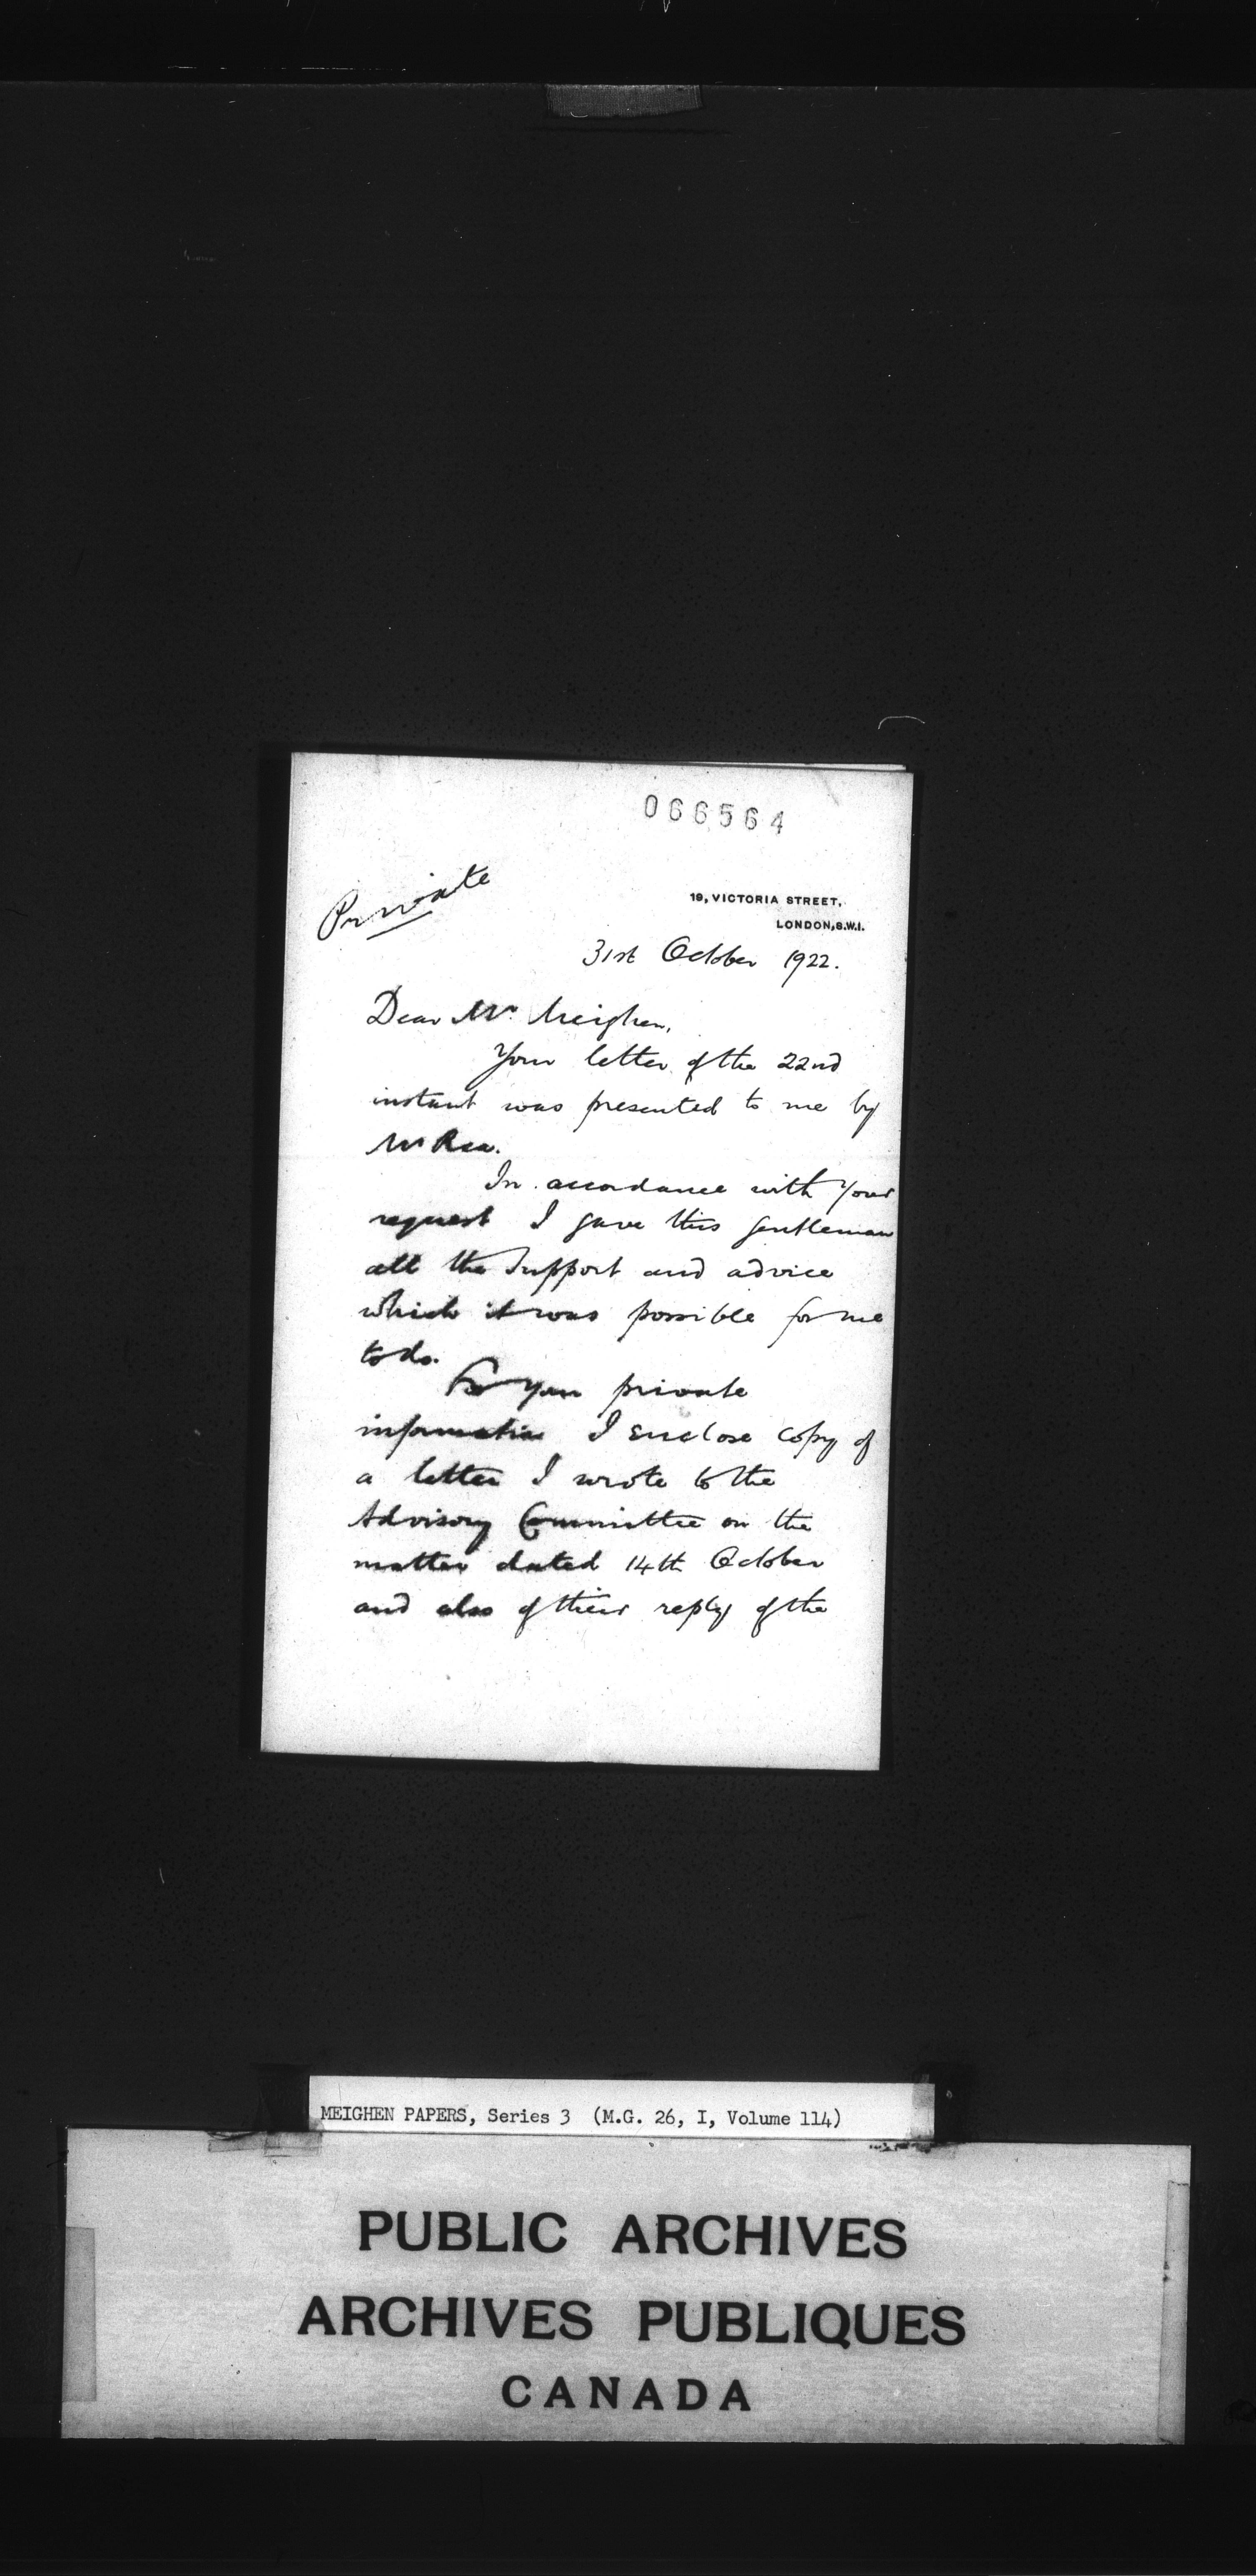 066564
Private
19, VICTORIA STREET,
LONDON, S.W.1.
31st October 1922.
Dear Mr. Meighen,
Your letter of the 22nd
instant was presented to me by
Mr Rea.
In accordance with your
request I gave this gentleman
all the support and advice
which it was possible for me
to do.
For your private
information I enclose copy of
a letter I wrote to the
Advisory Committee on the
matter dated 14th October
and also of their reply of the
MEIGHEN PAPERS, Series 3 (M.G. 26, I, Volume 114)
PUBLIC ARCHIVES
ARCHIVES PUBLIQUES
CANADA